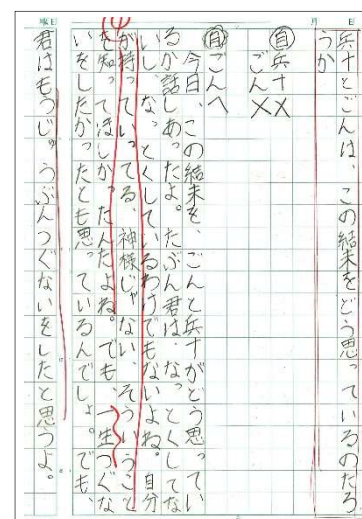 月 日 曜日
兵十とごんは、この結末をどう思っているのだろ
うか
自 兵十 ××
ごん ××
自 ごんへ
今日、この結末を、ごんと兵十がどう思ってい
るか話しあったよ。たぶん君は、なっとくしてな
いし、なっとくしているわけでもないよね。自分
が持っていってる、神様じゃない、そういうこと
を知ってほしかったんだよね。でも、一生つぐな
いをしたかったとも思っているんでしょ。でも、
君はもうじゅうぶんつぐないをしたと思うよ。